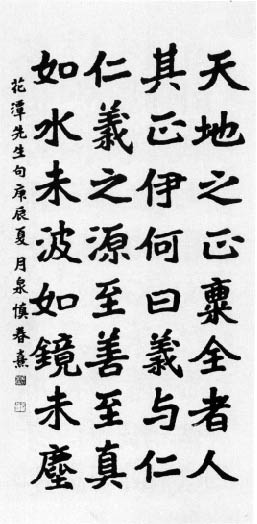 天地之正稟全者人
其正伊何曰義与仁
仁義之源至善至真
如水未波如鏡未塵
花潭先生句庚辰夏月泉慎春熹